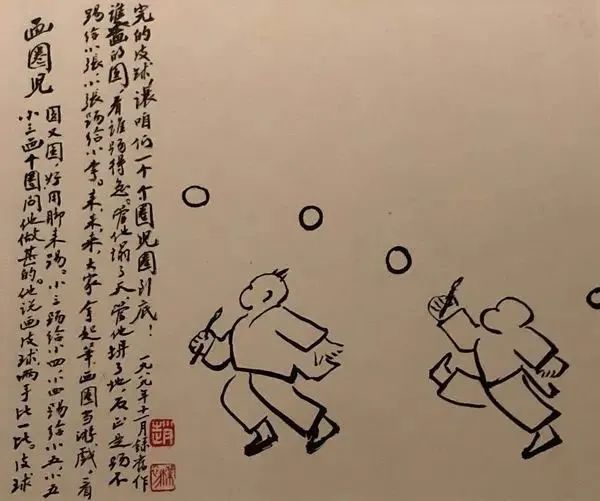 画圈儿
小三画个圈问他做甚的。他说画皮球两手比一比。皮球
圆又圆，好用脚来踢。小三踢给小四，小四踢给小五，小五
踢给小張，小張踢给小李。来、来、来，大家拿起笔画圈当游戏，看
谁画的圆，看谁踢得急。管他塌了天，管他拼了地，反正是踢不
完的皮球，讓咱们一个个圈儿圈到底！ 一九八九年十一月録舊作